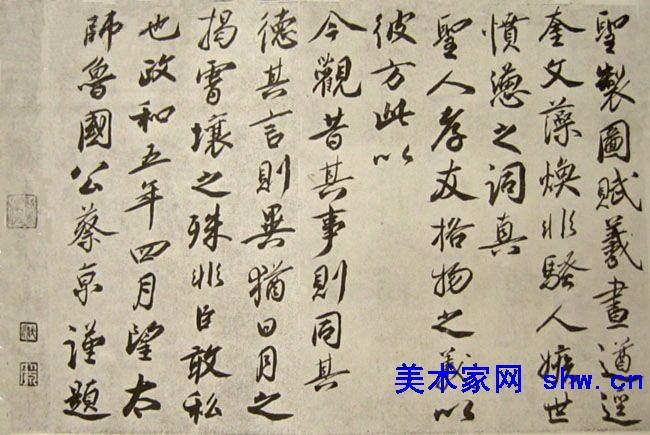 聖製圖賦羲畫遒逞
奎文藻煥非騷人嫉世
憤懣之詞真
聖人孝友格物之義以
彼方此以
今觀昔其事則同其
德其言則異猶日月之
揭霄壤之殊非臣敢私
也政和五年四月望太
師魯國公蔡京謹題
美术家网 shw.cn